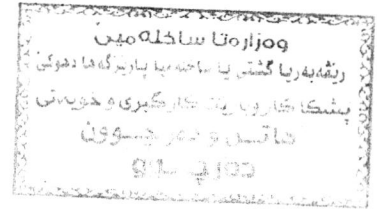 وەزارەتا ساخلەمیێ
رێڤەبەریا گشتی یا ساخلەمیا پارێزگەها دهوکێ
پشکا کاروبارێن کارگێری و خویەتی
هاتن و دەرچوون